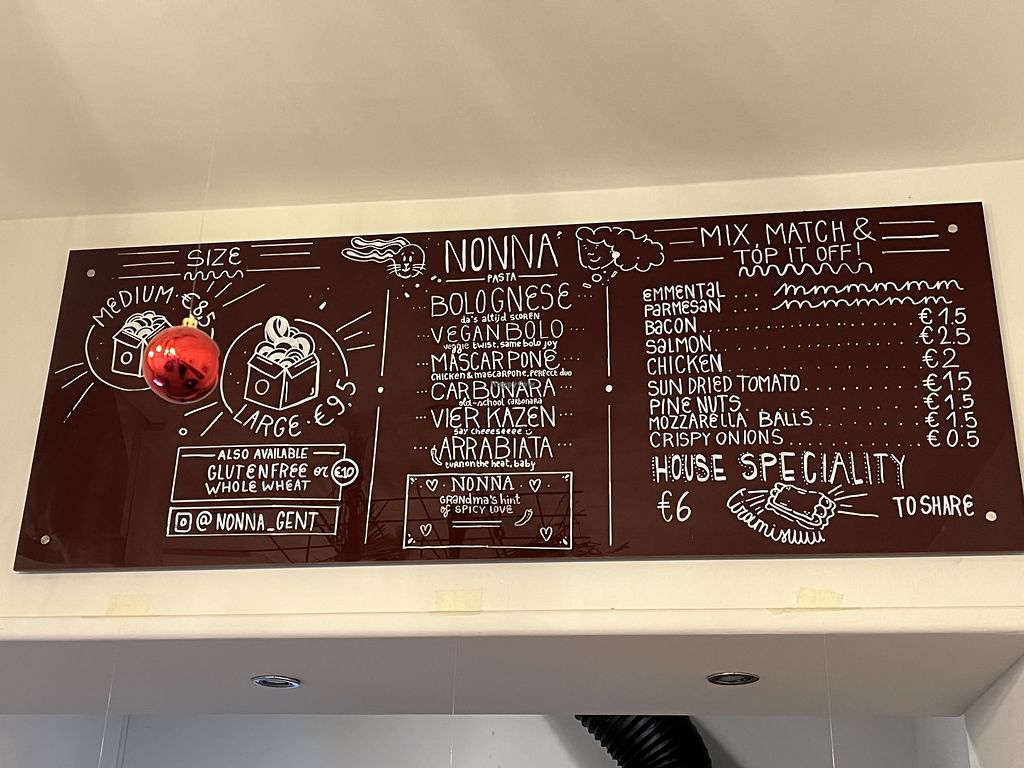 SIZE
MEDIUM €8,5
LARGE €9.5
ALSO AVAILABLE
GLUTENFREE or €10
WHOLE WHEAT
@ NONNA_GENT
NONNA
PASTA
BOLOGNESE
da's altijd scoren
VEGAN BOLO
veggie twist, same bolo joy
MASCARPONE
chicken & mascarpone, perfect duo
CARBONARA
old-school carbonara
VIER KAZEN
say cheeseeeee
ARRABIATA
turn on the heat, baby
NONNA
GRANDMA'S HINT
OF SPICY LOVE
MIX, MATCH &
TOP IT OFF!
EMMENTAL
PARMESAN
BACON € 1.5
SALMON € 2.5
CHICKEN € 2
SUN DRIED TOMATO € 1.5
PINE NUTS € 1.5
MOZZARELLA BALLS € 1.5
CRISPY ONIONS € 0.5
HOUSE SPECIALITY
€6 TO SHARE
tiramisuuu